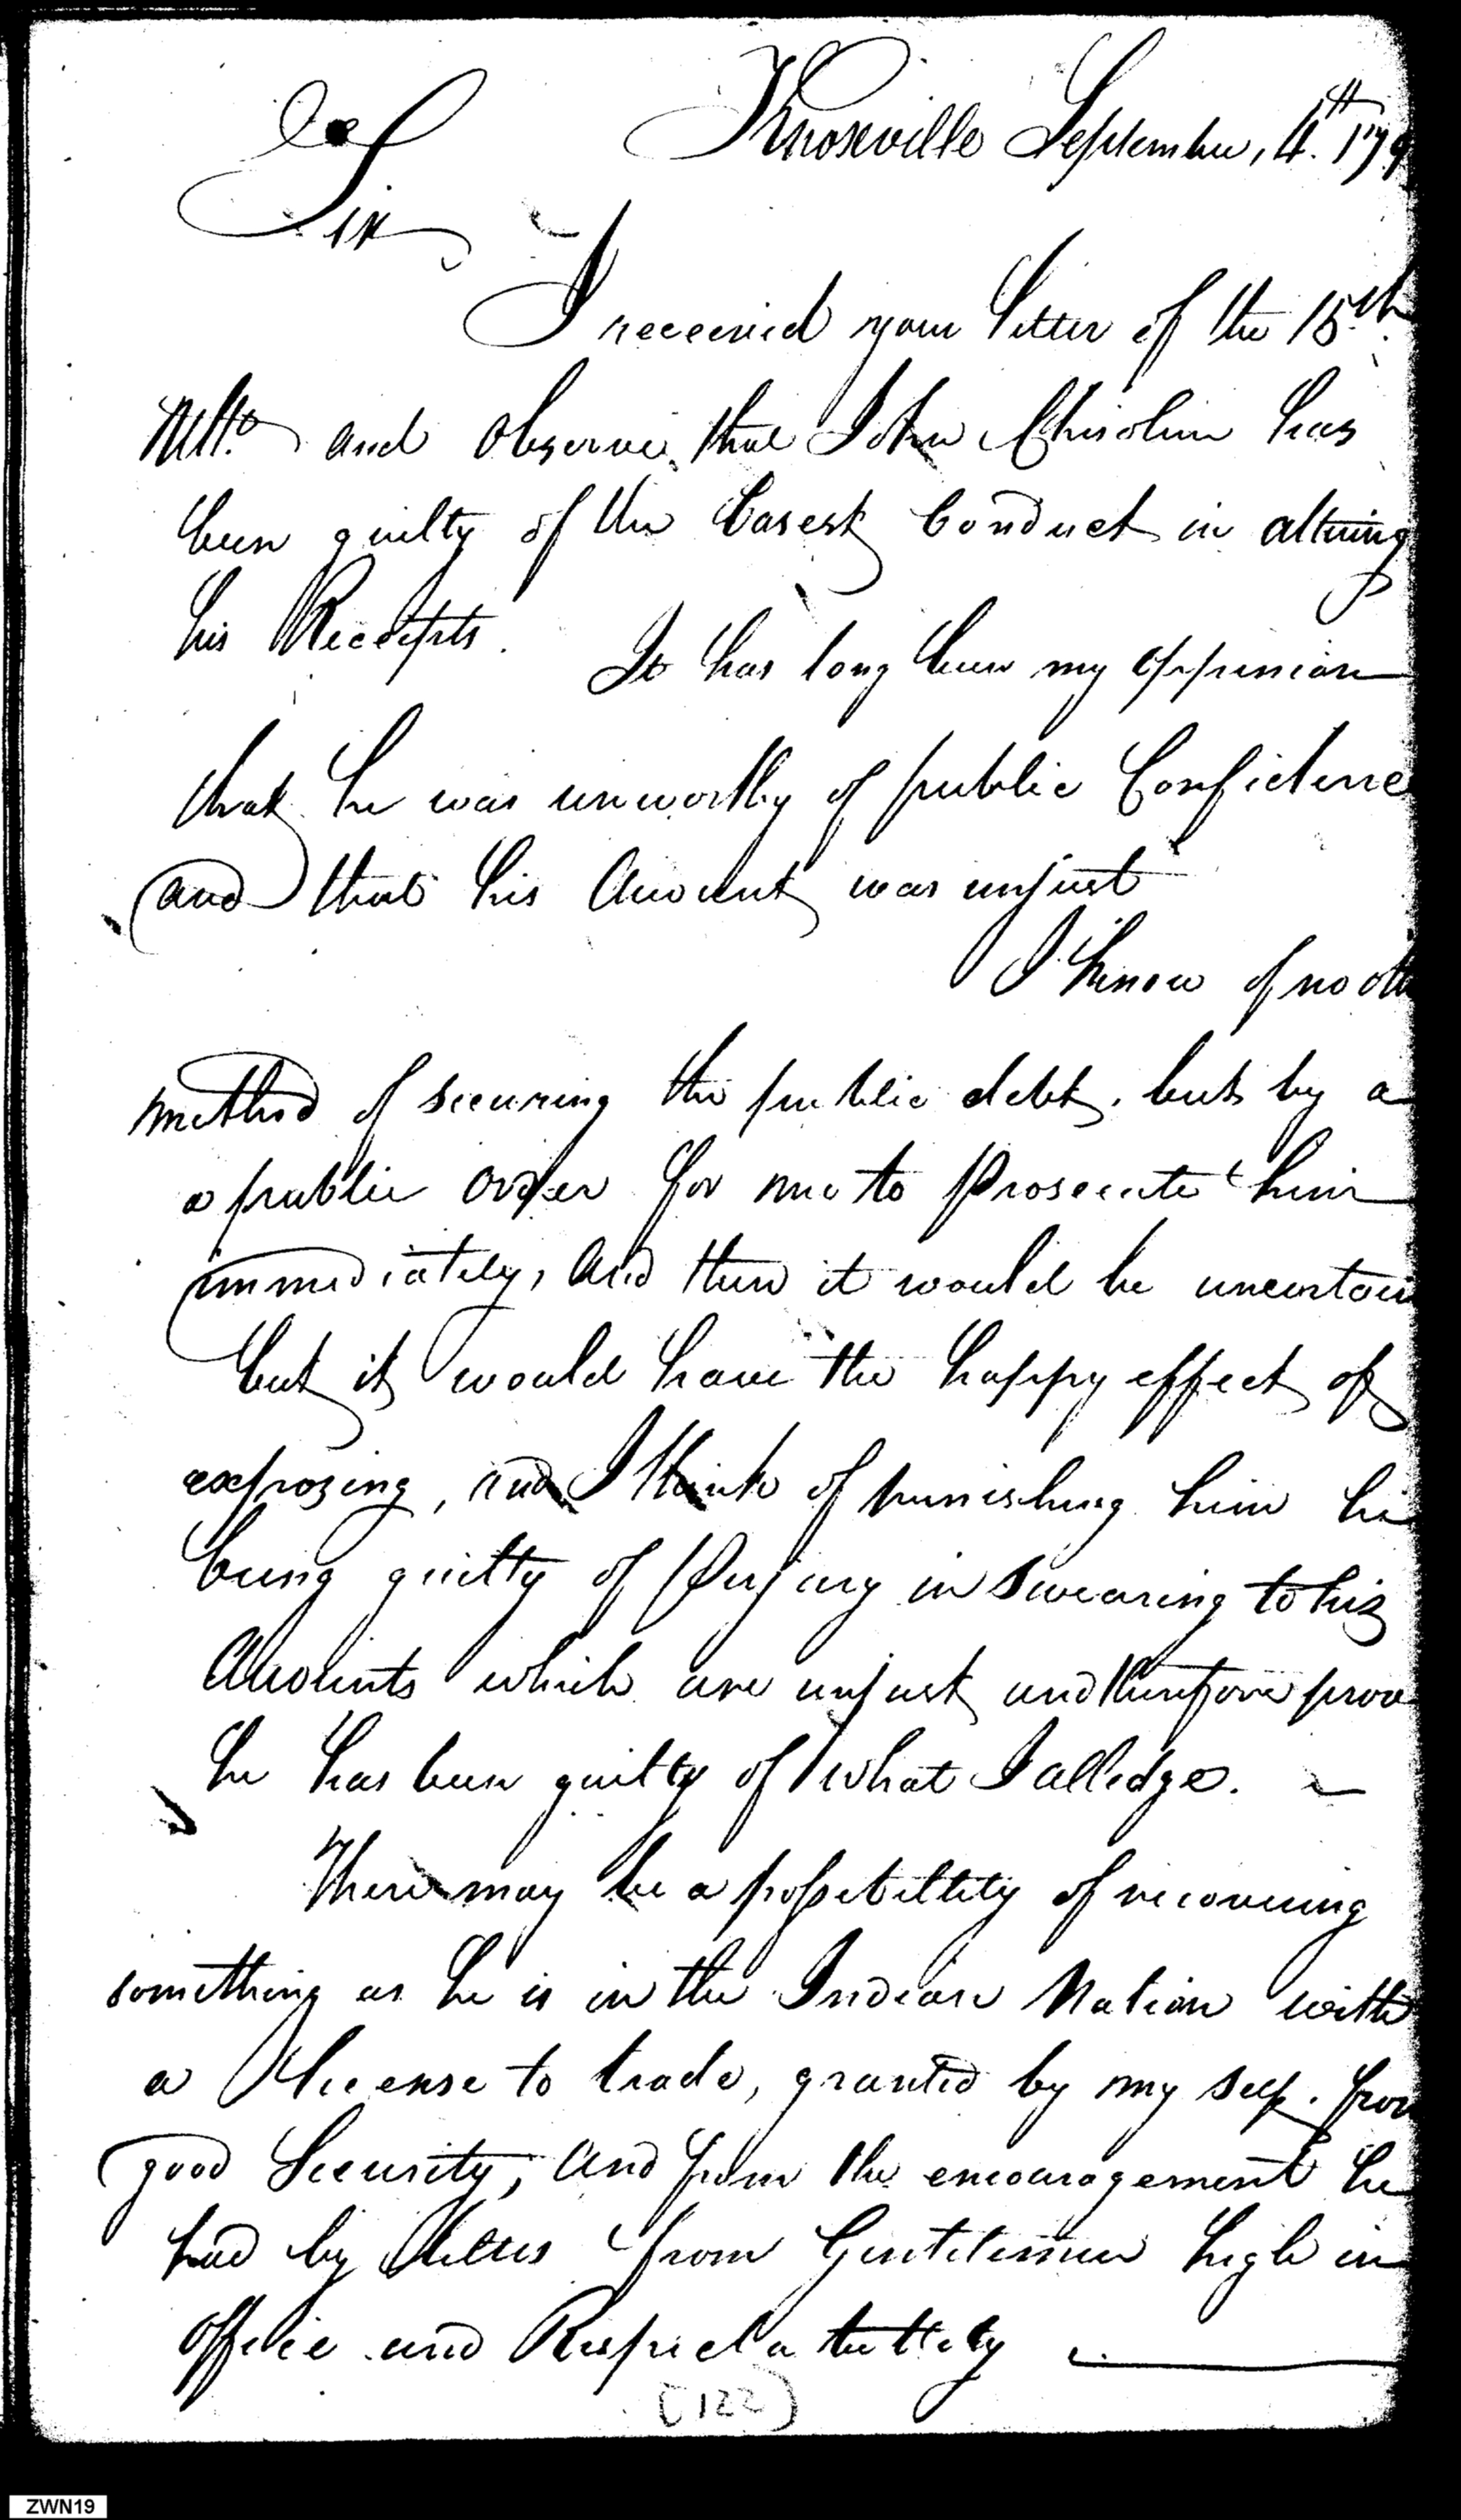 Knoxville September, 4th. 179
Sir
I received your letter of the 15th.
Ulto. and observe that John Chisolm has
been guilty of the basest Conduct in altering
his Receipts. It has long been my oppinion
that he was unworthy of public Confidence
and that his Account was unjust
I know of no oth
method of securing the public debt, but by a
a public order for me to Prosecute him
immediately, and then it would be uncertain
but it would have the happy effect of
exposing, and I think of punishing him he
being guilty of Perjury in swearing to his
Accounts which are unjust and therefore prove
he has been guilty of what I alledge.
There may be a possibillity of recovering
something as he is in the Indian Nation with
a license to trade, granted by my self. from
good Security, and from the encouragement he
had by letters from Gentlemen high in
office and Respectability
(122)
ZWN19